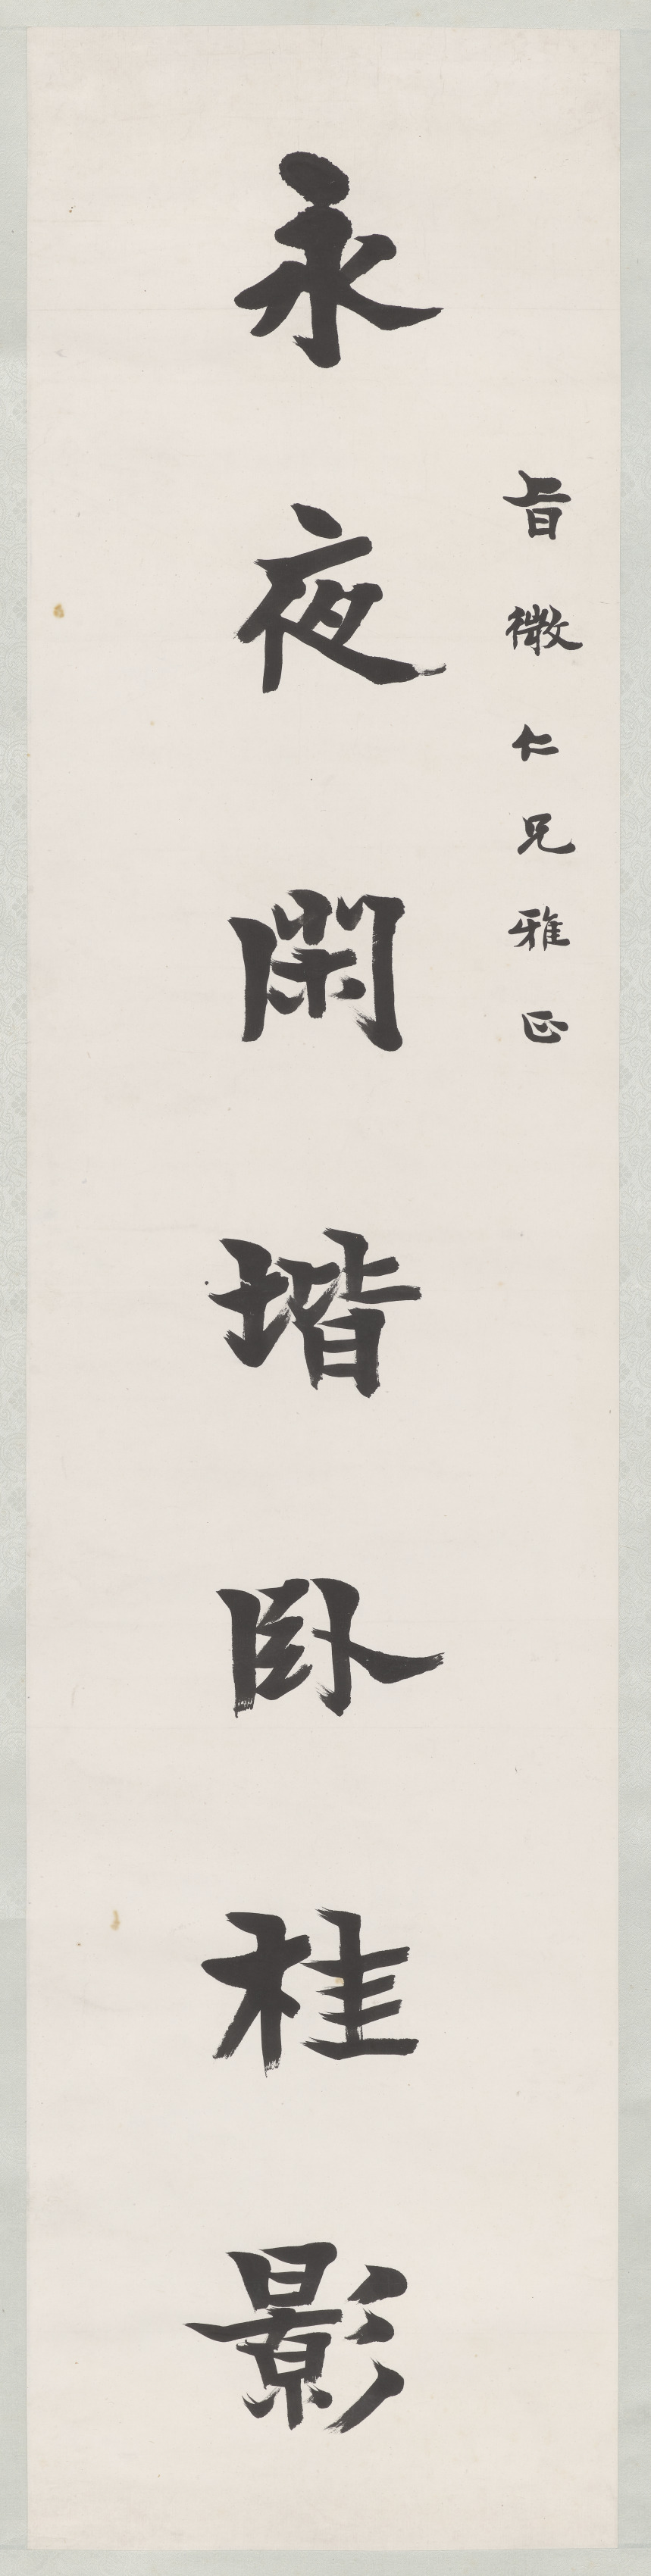 旨微仁兄雅正
永夜閑堦卧桂影